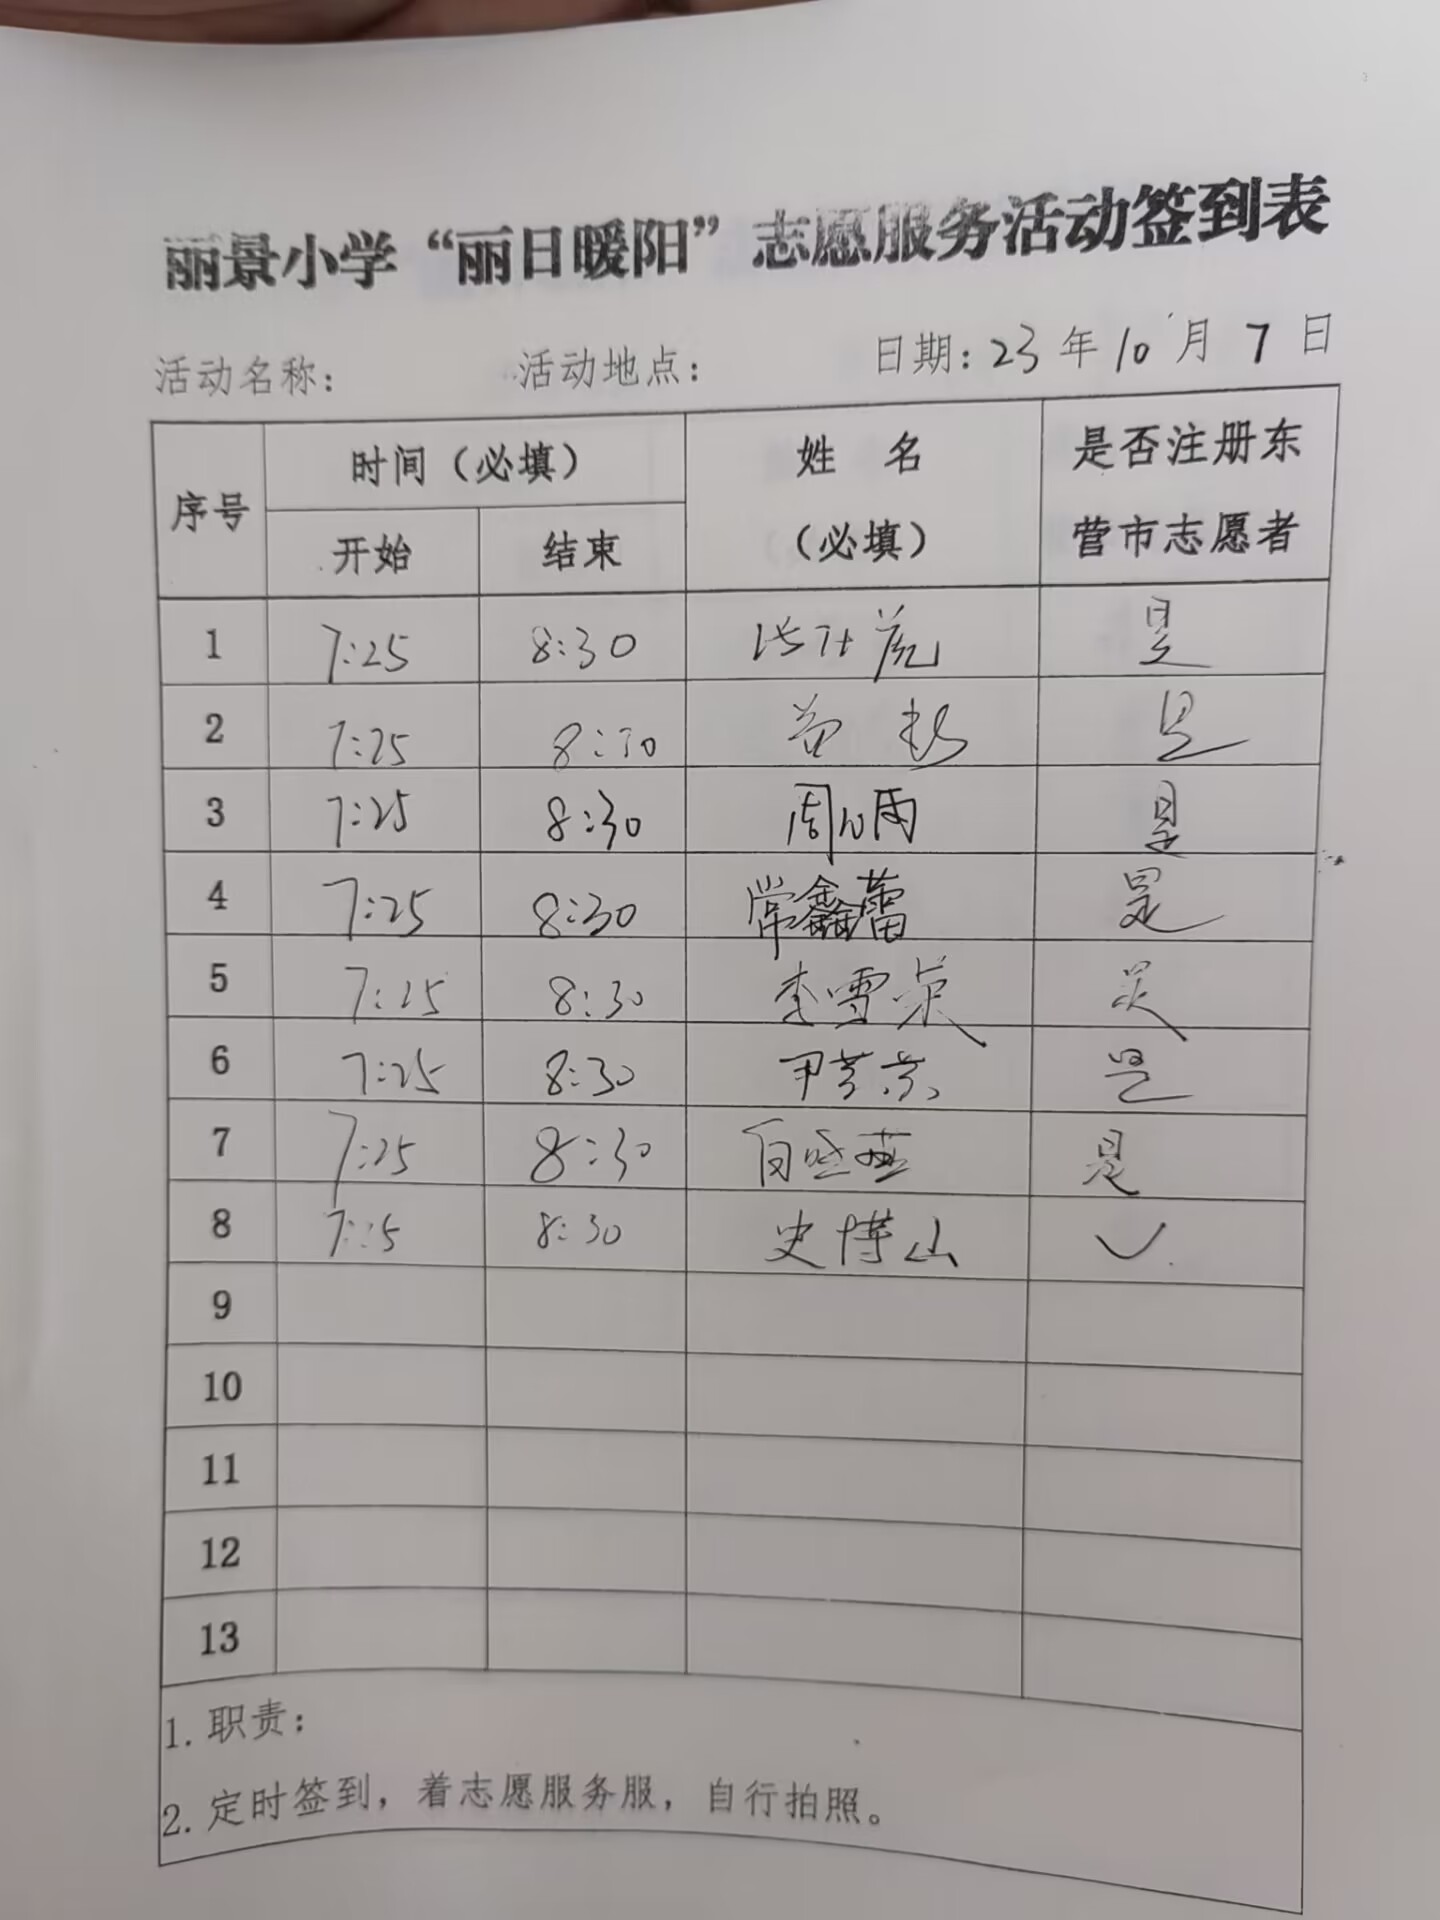 丽景小学“丽日暖阳”志愿服务活动签到表
活动名称： 活动地点： 日期：23年10月7日
序号 时间（必填） 姓 名（必填） 是否注册东营市志愿者
开始 结束
1 7:25 8:30 是
2 7:25 8:30 是
3 7:25 8:30 周心雨 是
4 7:25 8:30 常鑫蕾 是
5 7:25 8:30 李雪 是
6 7:25 8:30 尹 是
7 7:25 8:30 白 是
8 7:25 8:30 史博山 ✓
9
10
11
12
13
1.职责：
2.定时签到，着志愿服务服，自行拍照。